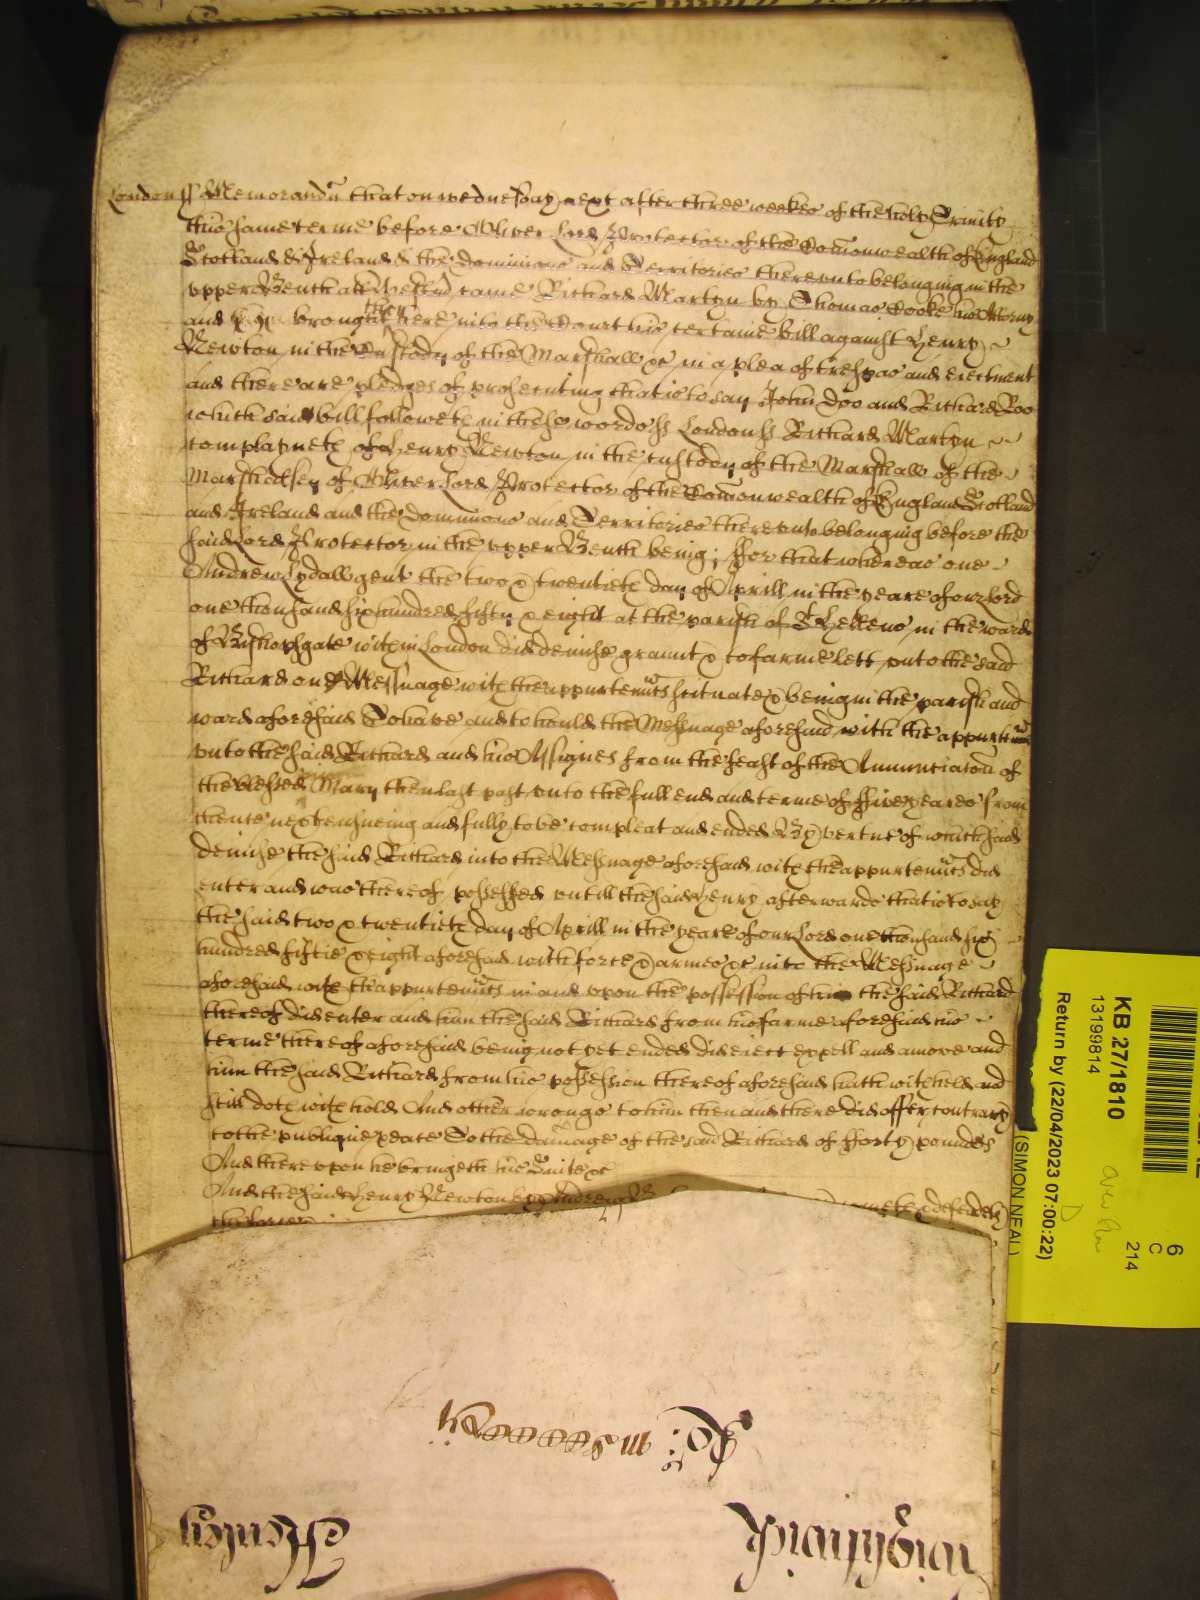 London ss Memorand̃ that on wednesday next after three weekes of the holy Trinity
this same terme before Oliver Lord Protector of the Com̃onwealth of England
Scotland & Ireland & the Dominions and Territories thereunto belonging in the
upper Bench att Westm̃ came Richard Martyn by Thomas Cooke his Attorny
and brought here into the Court then his certaine bill against Henry
Newton in the Custody of the Marshall &c in a plea of trespas and eiectment
and there are pledges of prosecuting that is to say John Doo and Richard Roo
which said bill followeth in these words ss London ss Richard Martyn
complayneth of Henry Newton in the custody of the Marshall of the
Marshalsey of Oliver Lord Protector of the Com̃onwealth of England Scotland
and Ireland and the Dominions and Territories thereunto belonging before the
said Lord Protector in the upper Bench being; ffor that whereas one
Andrew Lydall gent the two & twentieth day of Aprill in the yeare of our lord
one thousand six hundred fifty & eight at the parish of St Hellens in the ward
of Bishopsgate within London did demise graunt & to farme lett unto the said
Richard one Messuage with the appurtenn̄ts scituate & being in the parish and
ward aforesaid To have and to hould the Messuage aforesaid with the appurten̄
unto the said Richard and his Assignes from the feast of the Annunciac̃on of
the blessed Mary then last past unto the full end and terme of ffive yeares from
thence next ensueing and fully to be compleat and ended By vertue of which said
demise the said Richard into the Messuage aforesaid with the appurtenn̄ts did
enter and was thereof possessed untill the said Henry afterwards that is to say
the said two & twentieth day of Aprill in the yeare of our Lord one thousand six
hundred fiftie & eight aforesaid with force & armes &c into the Messuage
aforesaid with thappurtenn̄ts in and upon the possession of him the said Richard
thereof did enter and him the said Richard from his farme aforesaid his
terme thereof aforesaid being not yet ended did eiect expell and amove and
him the said Richard from his possession thereof aforesaid hath witheld and
still doth withhold And other wrongs to him then and there did offer contrary
to the publique peace To the dam̃age of the said Richard of fforty pounds
And thereupon he bringeth his Suite &c
And the said Henry Newton by Andrew
Ro:
Wightwick
Henley
KB 27/1810
13199814
Return by (22/04/2023 07:00:22)
(SIMON NEAL)
6
C
214